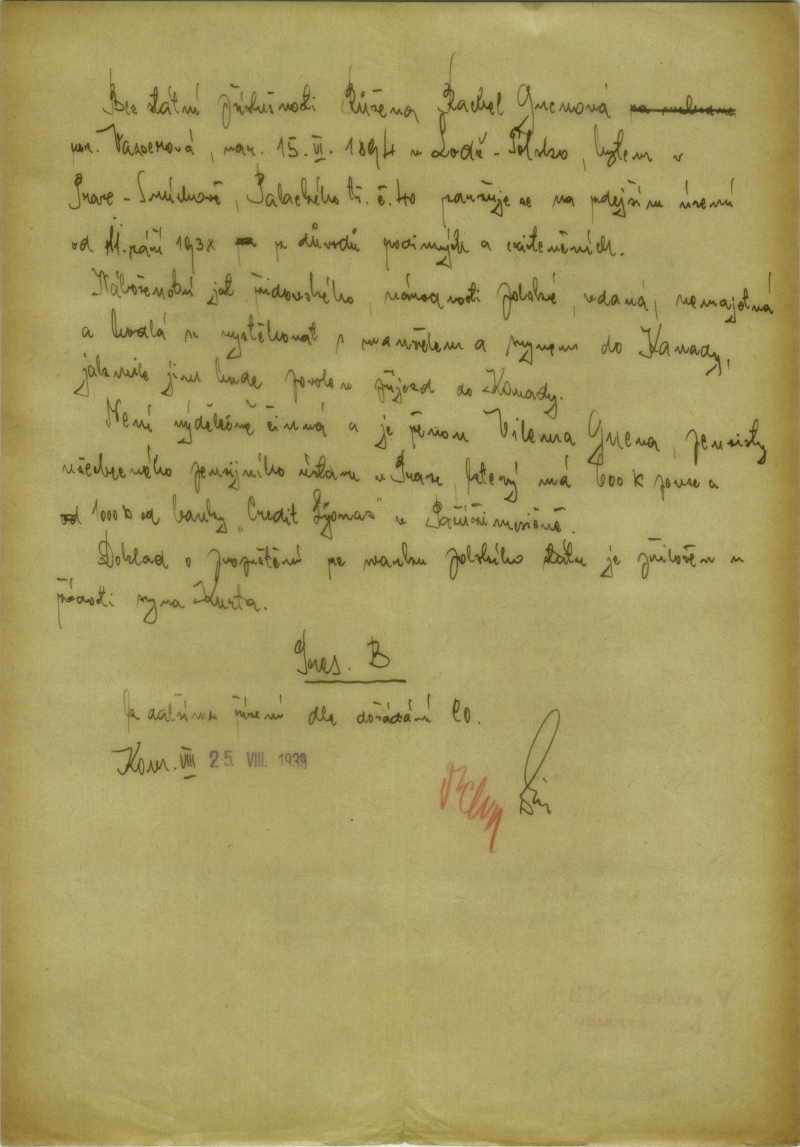 Bez státní příslušnosti Růžena Rachel Gucnová
nar. 15. VI. 1894 v Lodě - Polsko, bytem v
Praze - Smíchově, Palackého tř. č. 40 zdržuje se na zdejším území
od září 193 z důvodů rodinných a existenčních.
Náboženství jest židovského, národnosti polské, vdaná, nemajetná
a hodlá se vystěhovat s manželem a synem do Kanady,
jakmile jim bude povolen příjezd do Kanady.
Není výdělečně činná a je ženou Viléma Gucna, penzisty
všeobecného penzijního ústavu v Praze, který má 600 K penze a
od 1000 K od banky „Credit Lyonas" v Paříži měsíčně.
Doklad o propuštění ze svazku polského státu je přiložen u
žádosti syna Kurta.
Pres. B
k dalšímu řízení dle dožádání CO.
Kom. VIII 25. VIII. 1939